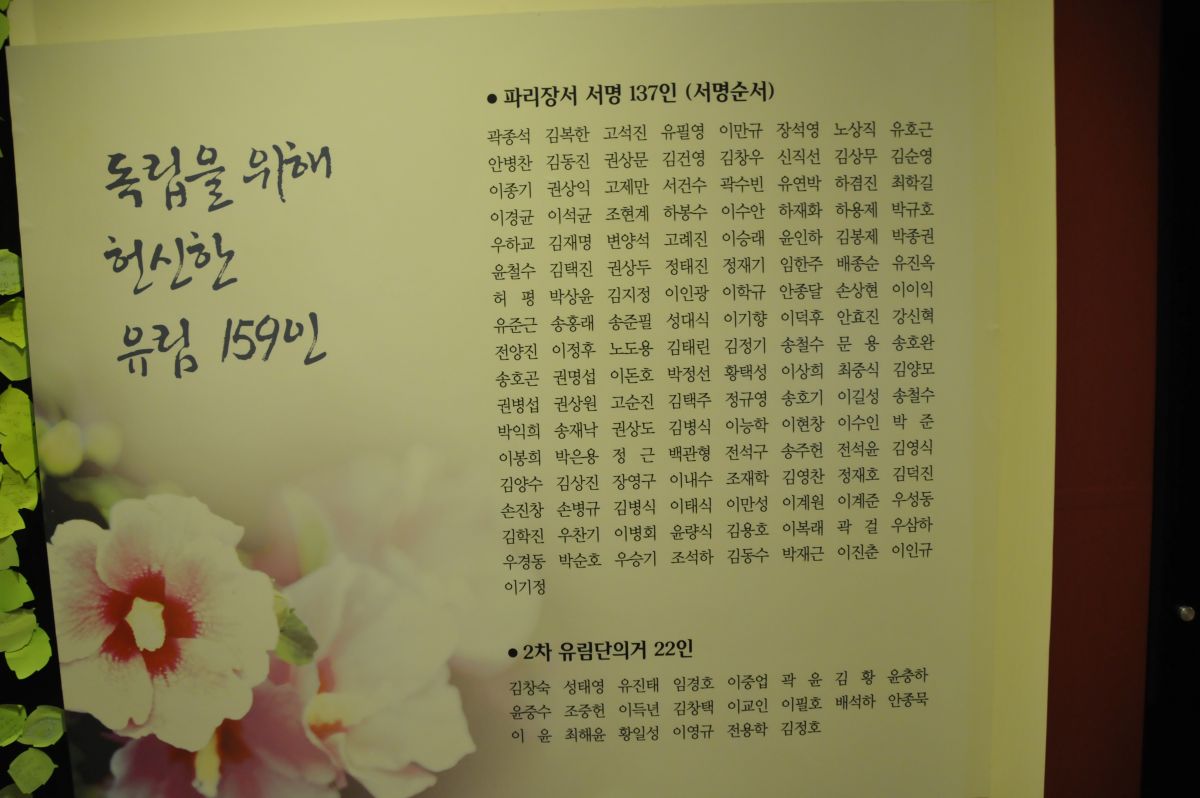 독립을 위해
헌신한
유림 159인
● 파리장서 서명 137인 (서명순서)
곽종석 김복한 고석진 유필영 이만규 장석영 노상직 유호근
안병찬 김동진 권상문 김건영 김창우 신직선 김상무 김순영
이종기 권상익 고제만 서건수 곽수빈 유연박 하겸진 최학길
이경균 이석균 조현계 하봉수 이수안 하재화 하용제 박규호
우하교 김재명 변양석 고례진 이승래 윤인하 김봉제 박종권
윤철수 김택진 권상두 정태진 정재기 임한주 배종순 유진옥
허 평 박상윤 김지정 이인광 이학규 안종달 손상현 이이익
유준근 송홍래 송준필 성대식 이기향 이덕후 안효진 강신혁
전양진 이정후 노도용 김태린 김정기 송철수 문 용 송호완
송호곤 권명섭 이돈호 박정선 황택성 이상희 최중식 김양모
권병섭 권상원 고순진 김택주 정규영 송호기 이길성 송철수
박익희 송재낙 권상도 김병식 이능학 이현창 이수인 박 준
이봉희 박은용 정 근 백관형 전석구 송주헌 전석윤 김영식
김양수 김상진 장영구 이내수 조재학 김영찬 정재호 김덕진
손진창 손병규 김병식 이태식 이만성 이계원 이계준 우성동
김학진 우찬기 이병회 윤량식 김용호 이복래 곽 걸 우삼하
우경동 박순호 우승기 조석하 김동수 박재근 이진춘 이인규
이기정
● 2차 유림단의거 22인
김창숙 성태영 유진태 임경호 이중업 곽 윤 김 황 윤충하
윤중수 조중헌 이득년 김창택 이교인 이필호 배석하 안종묵
이 윤 최해윤 황일성 이영규 전용학 김정호